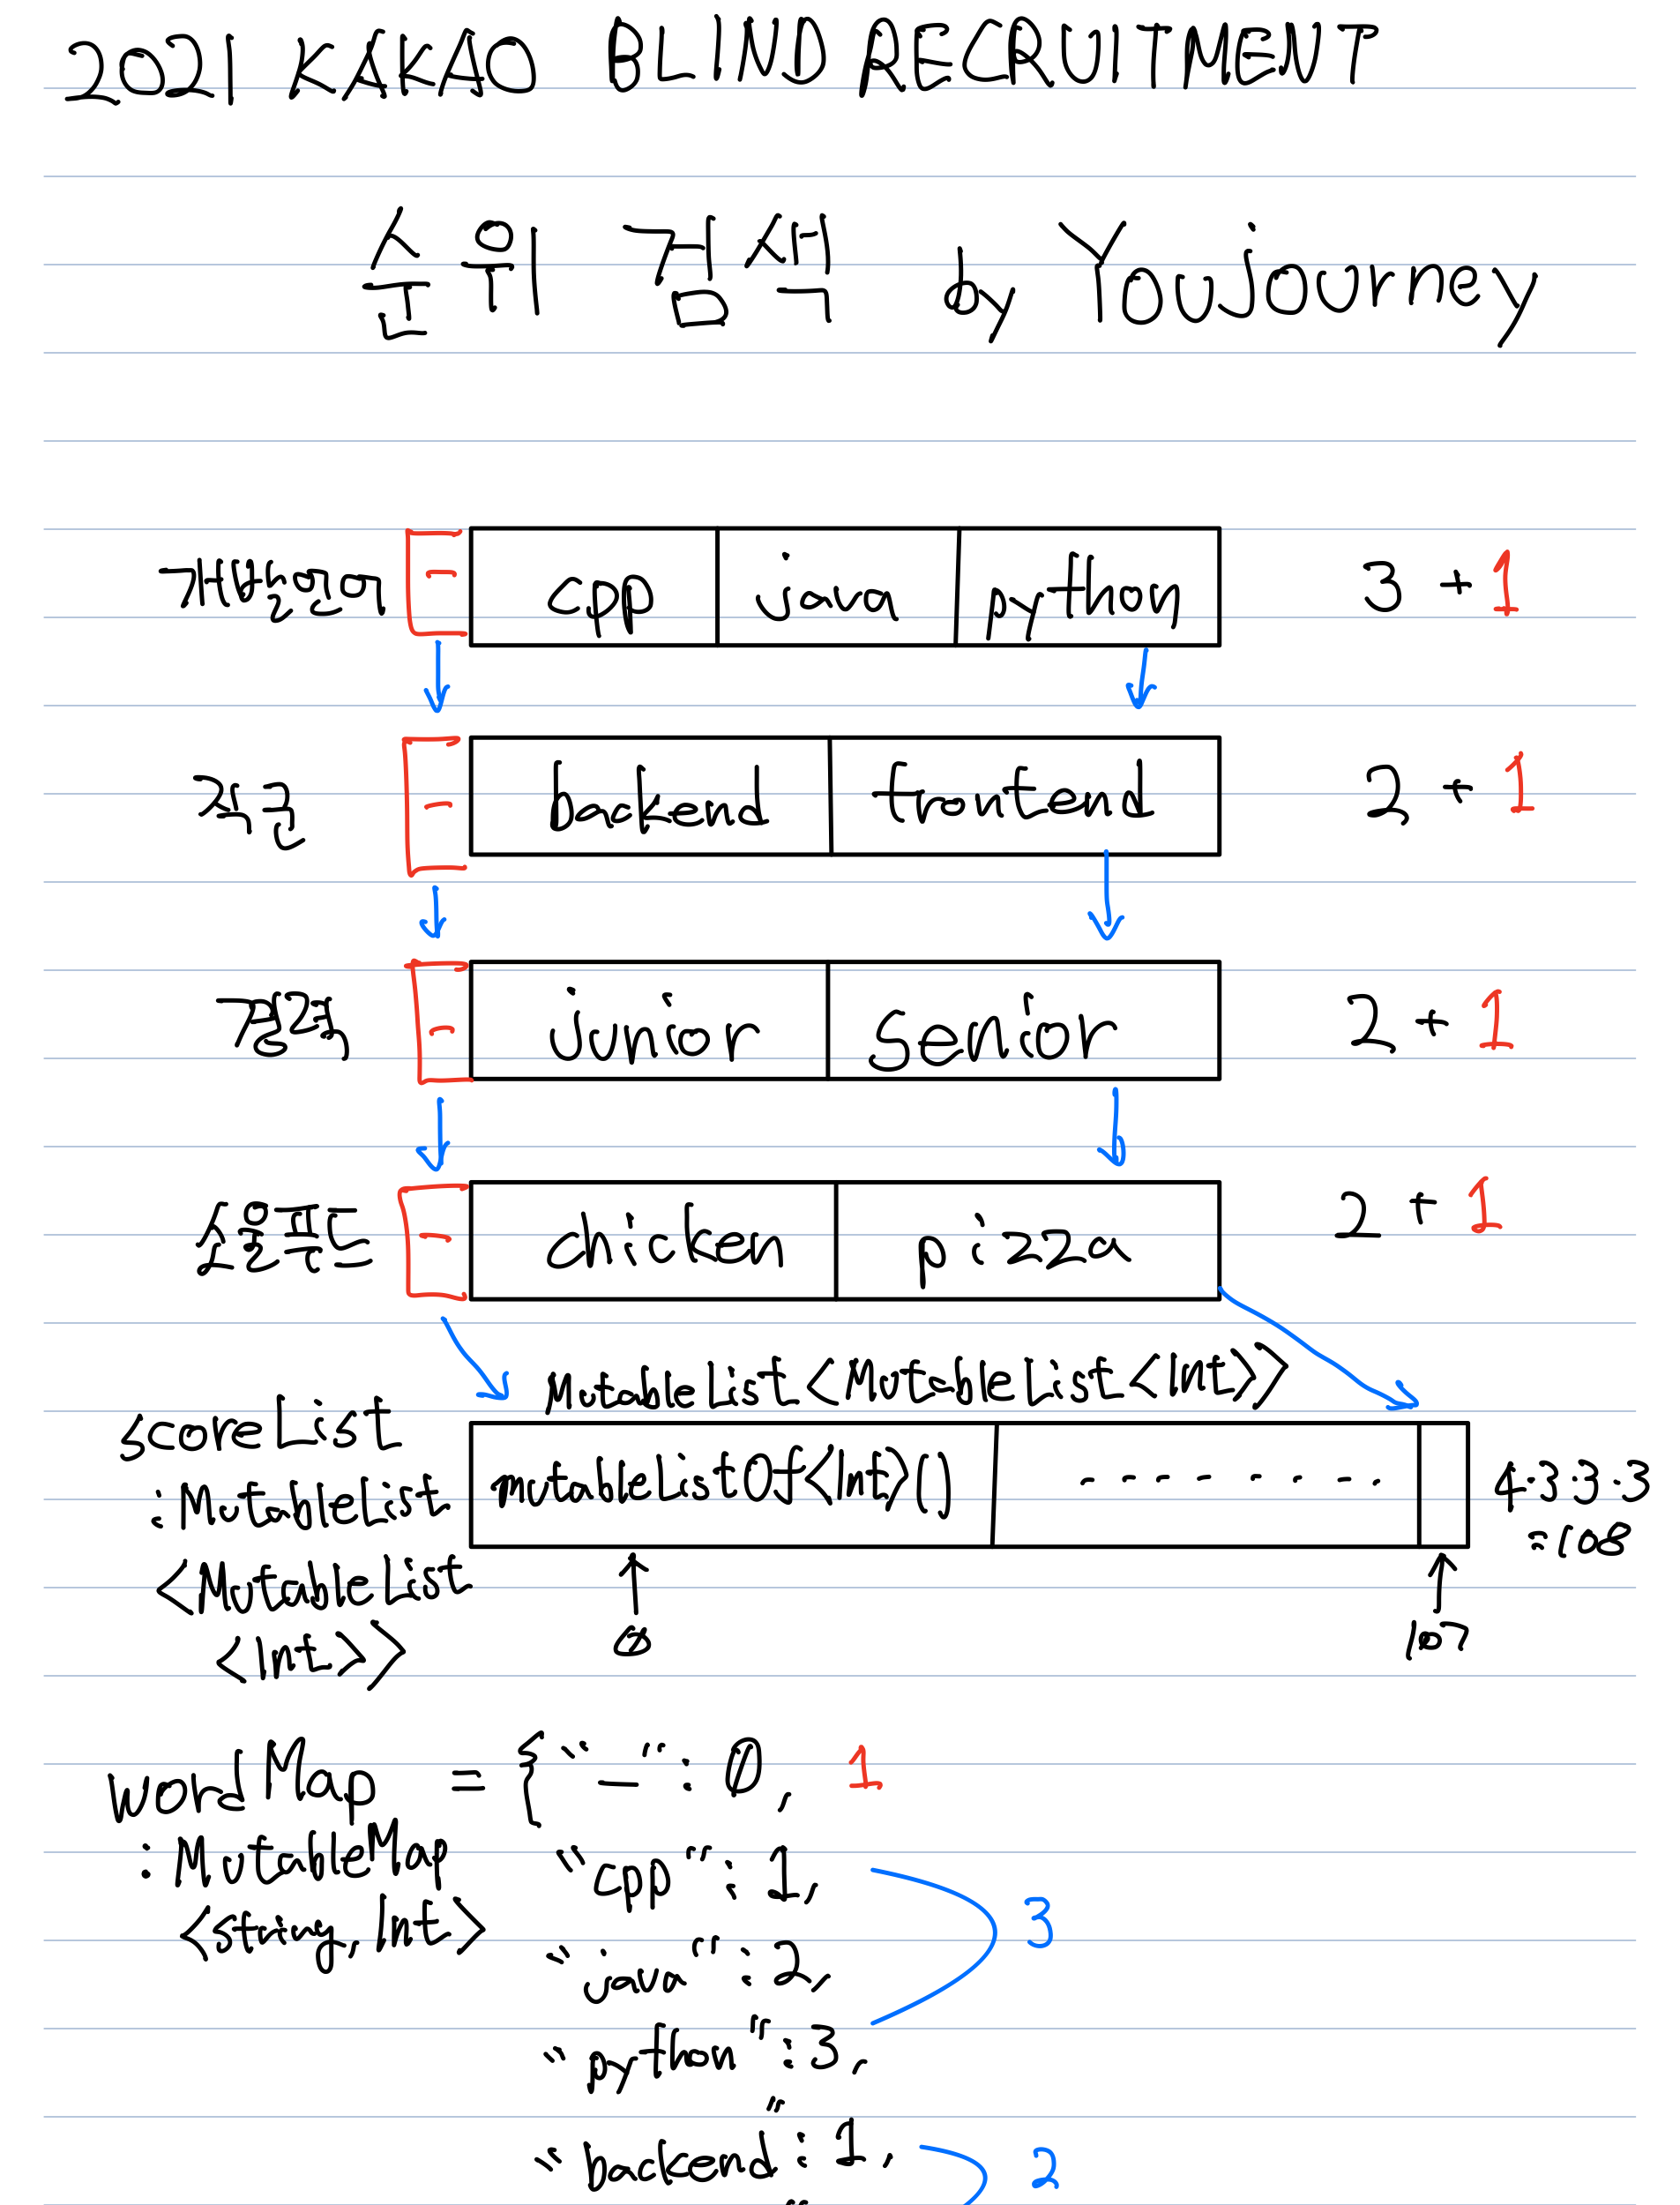 2021 KAKAO BLIND RECRUITMENT
순위 검색 by Youjourney
개발언어 - cpp java python 3 + 1
직군 - backend frontend 2 + 1
경력 - junior senior 2 + 1
소울푸드 - chicken pizza 2 + 1
MutableList<MutableList<Int>>
scoreList
:MutableList
<MutableList
<Int>>
mutableListOf<Int>() - - - - - - - -
4·3·3·3
=108
0 107
wordMap = {"-":0, 1
:MutableMap
<String, Int>
"cpp":1,
"java":2,
"python":3,
3
"backend":1,
2